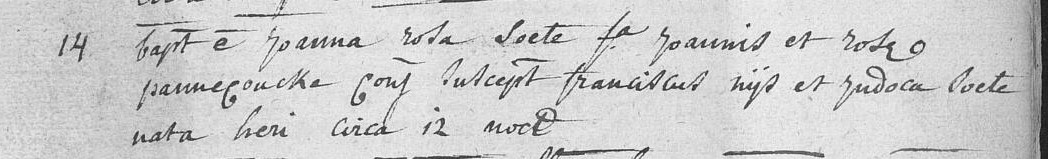 14 bapt e Joanna rosa Soete fa Joannis et rosæ
pannecoucke conj suscept franciscus nijs et Judoca Soete
nata heri circa 12 noct